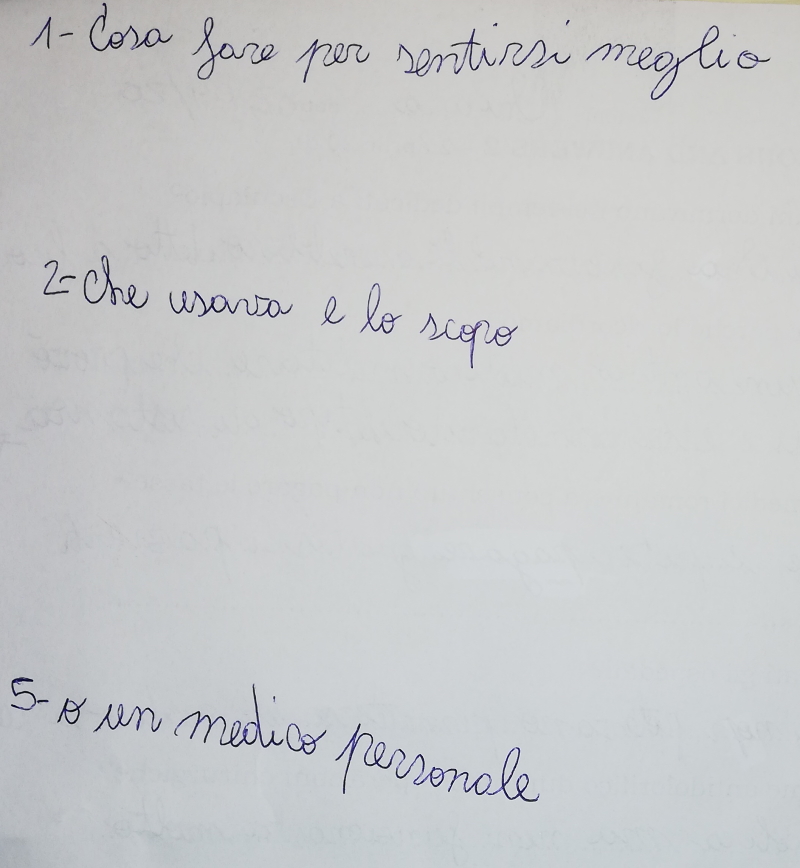 1- Cosa fare per sentirsi meglio
2- Che usava e lo scopo
5- o un medico personale